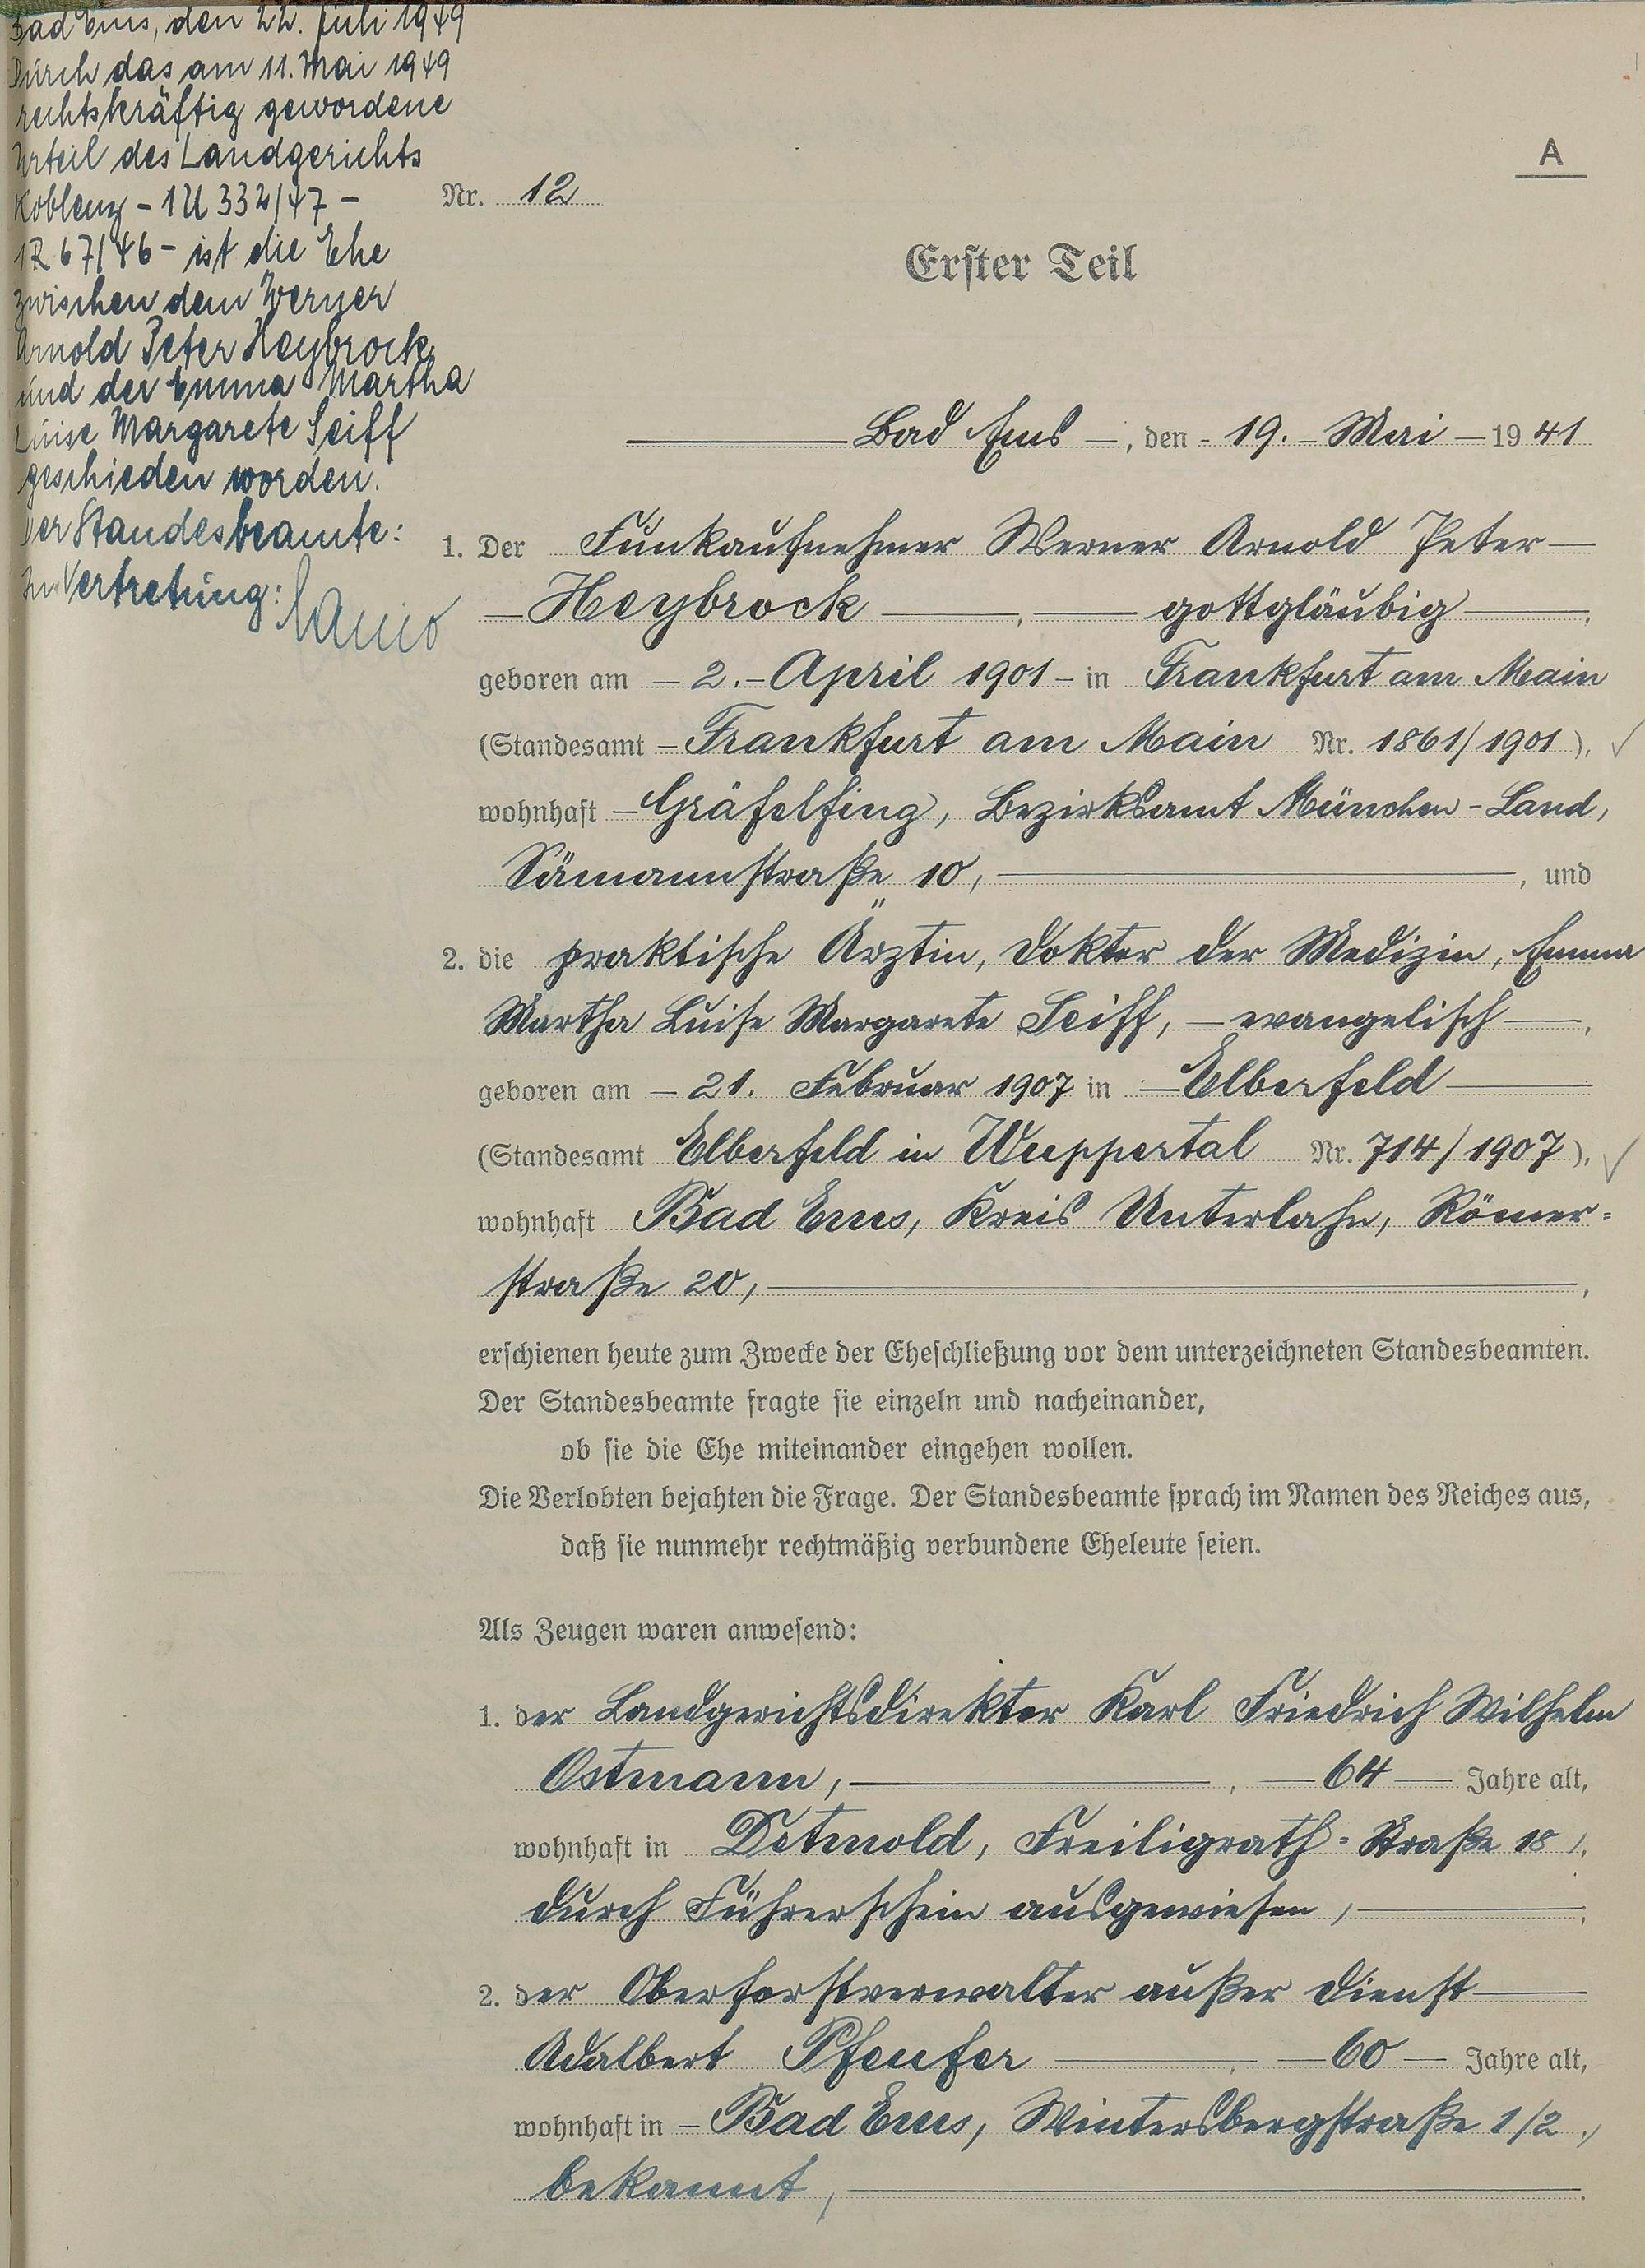 Bad Ems, den 22. Juli 1949
Durch das am 11. Mai 1949
rechtskräftig gewordene
Urteil des Landgerichts
Koblenz - 1 U 332/47 -
1 R 67/46 - ist die Ehe
zwischen dem Werner
Arnold Peter Heybrock
und der Emma Martha
Luise Margarete Seiff
geschieden worden.
Der Standesbeamte:
In Vertretung:
A
Nr. 12
Erster Teil
Bad Ems —, den - 19. - Mai - 1941
1. Der Funkaufnehmer Werner Arnold Peter —
— Heybrock —, — gottgläubig —,
geboren am - 2. - April 1901 - in Frankfurt am Main
(Standesamt - Frankfurt am Main Nr. 1861/1901),
wohnhaft - Gräfelfing, Bezirksamt München - Land,
Sämannstraße 10, —, und
2. die praktische Ärztin, Doktor der Medizin, Emma
Martha Luise Margarete Seiff, — evangelisch —,
geboren am - 21. Februar 1907 in - Elberfeld —
(Standesamt Elberfeld in Wuppertal Nr. 714/1907),
wohnhaft Bad Ems, Kreis Unterlahn, Römer=
straße 20, —,
erschienen heute zum Zwecke der Eheschließung vor dem unterzeichneten Standesbeamten.
Der Standesbeamte fragte sie einzeln und nacheinander,
ob sie die Ehe miteinander eingehen wollen.
Die Verlobten bejahten die Frage. Der Standesbeamte sprach im Namen des Reiches aus,
daß sie nunmehr rechtmäßig verbundene Eheleute seien.
Als Zeugen waren anwesend:
1. der Landgerichtsdirektor Karl Friedrich Wilhelm
Ostmann, —, — 64 — Jahre alt,
wohnhaft in Detmold, Freiligrath = Straße 18,
durch Führerschein ausgewiesen, —,
2. der Oberforstverwalter außer Dienst —
Adalbert Pfeufer —, — 60 — Jahre alt,
wohnhaft in - Bad Ems, Wintersbergstraße 1/2,
bekannt, —.